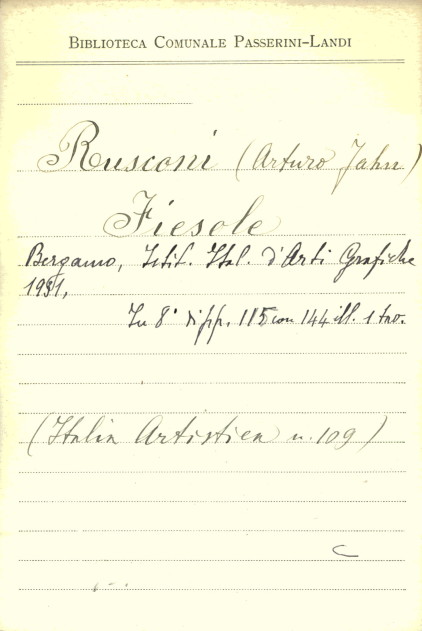 BIBLIOTECA COMUNALE PASSERINI-LANDI
Rusconi (Arturo Jahn)
Fiesole
Bergamo, Istit. Ital. d'Arti Grafiche
1931,
In 8° di pp. 115 con 144 ill. 1 tav.
(Italia Artistica n. 109)
C